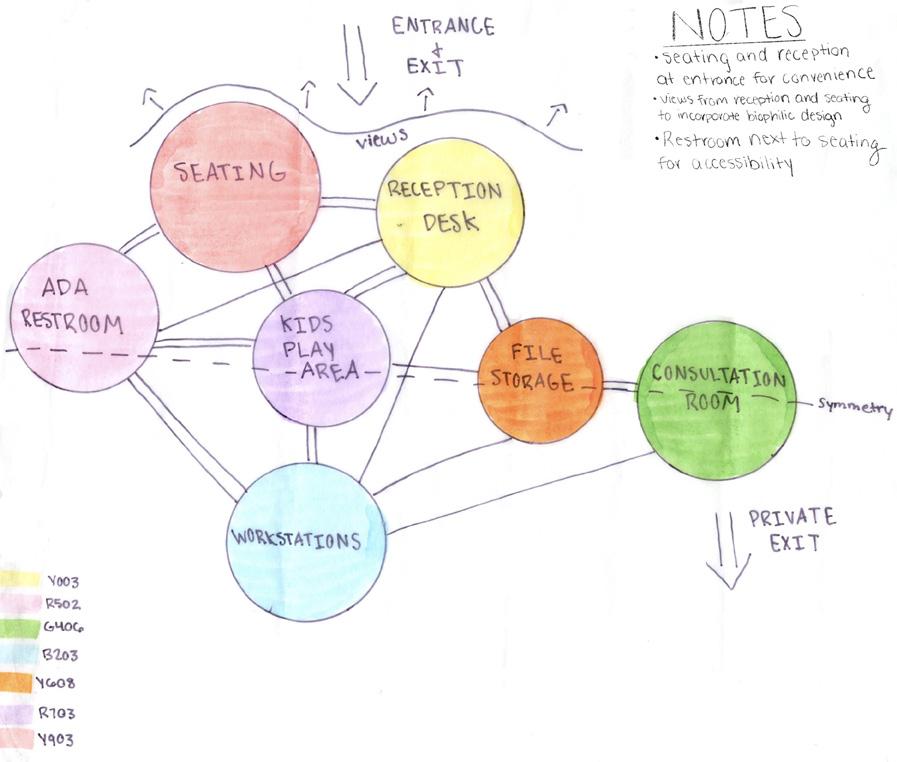 ENTRANCE
&
EXIT
NOTES
• seating and reception
at entrance for convenience
• views from reception and seating
to incorporate biophilic design
• Restroom next to seating
for accessibility
views
SEATING
RECEPTION
DESK
ADA
RESTROOM
KIDS
PLAY
AREA
FILE
STORAGE
CONSULTATION
ROOM
symmetry
WORKSTATIONS
PRIVATE
EXIT
Y003
R502
G406
B203
Y608
R703
Y903